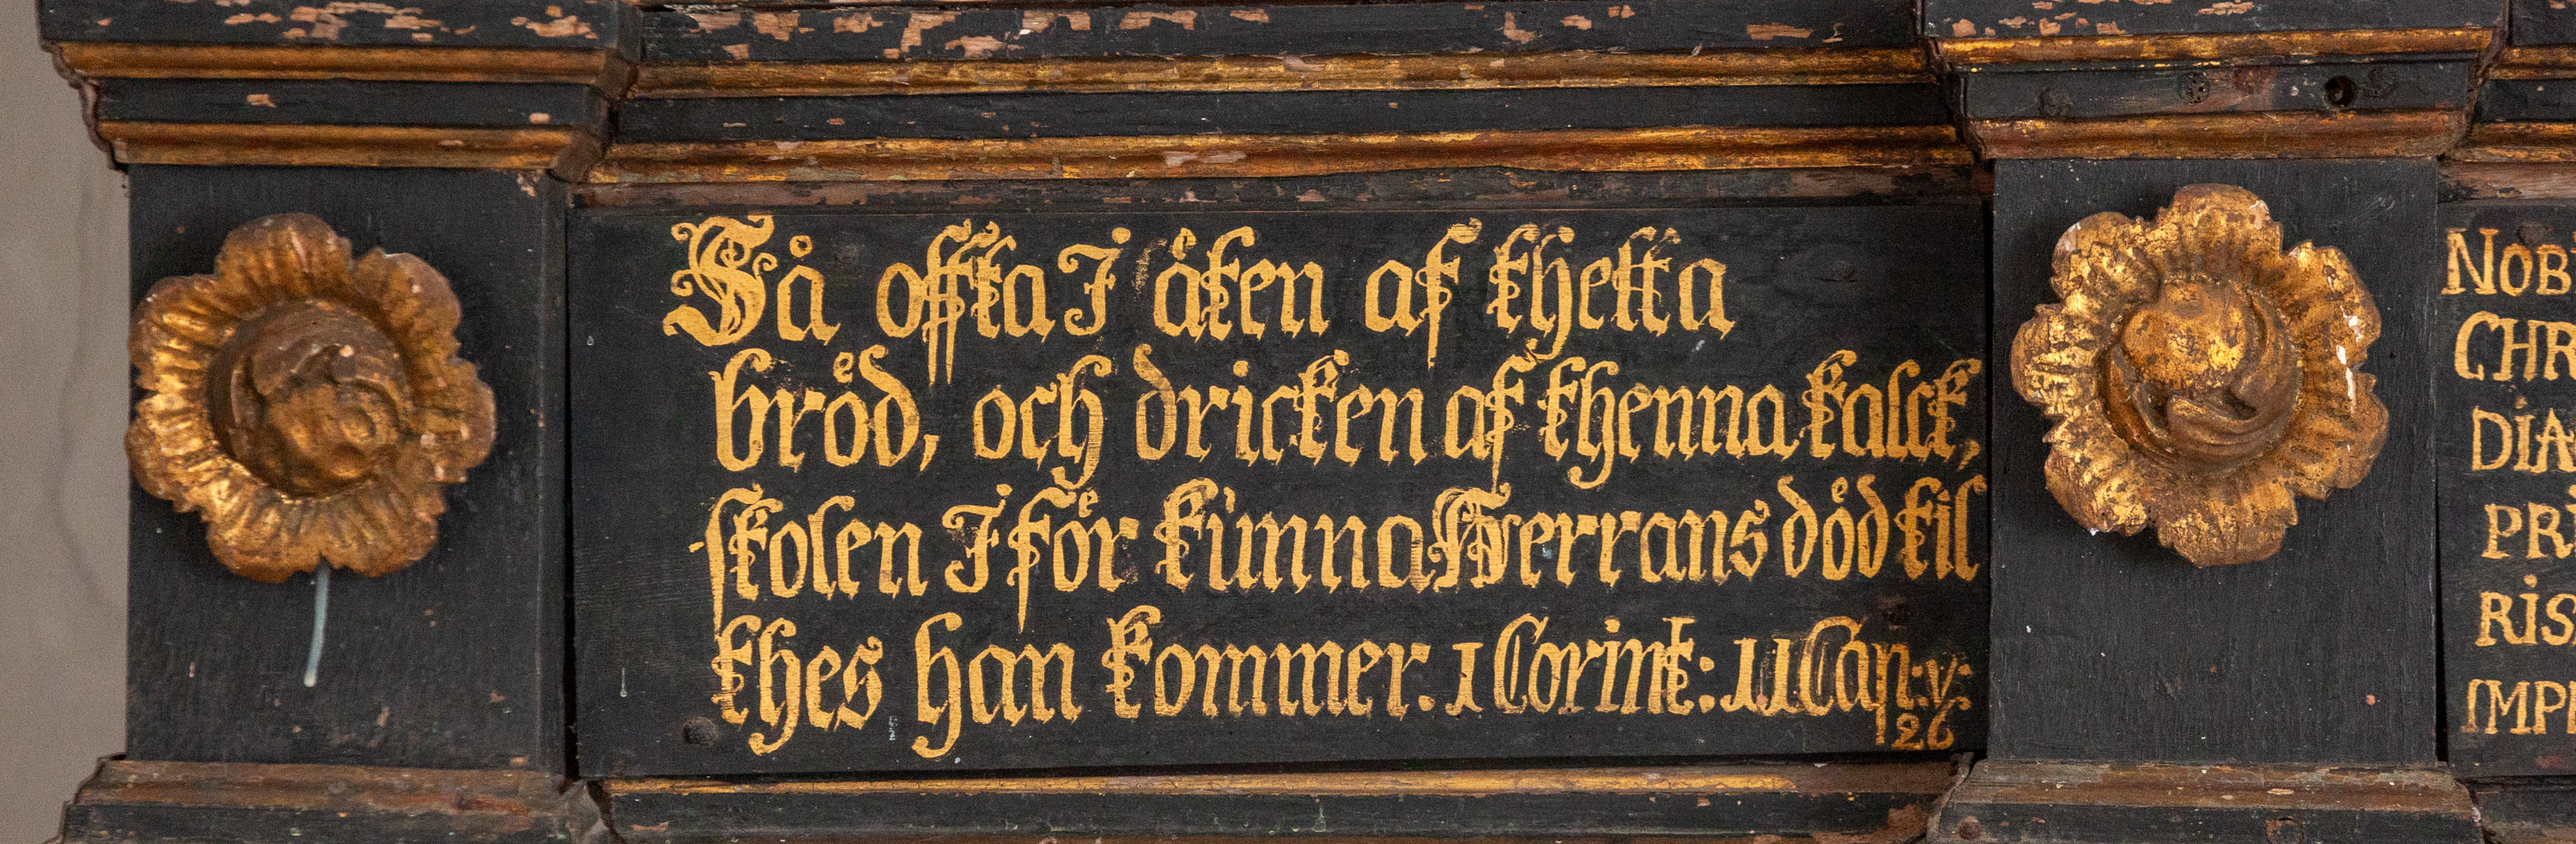 Så offta J åten af thetta
bröd, och dricken af thenna kalck,
skolen J för kunna Herrans död til
thes han kommer. 1 Corint: 11 Cap: v:
26
NOB
CHR
DIA
PRI
RIS
IMP